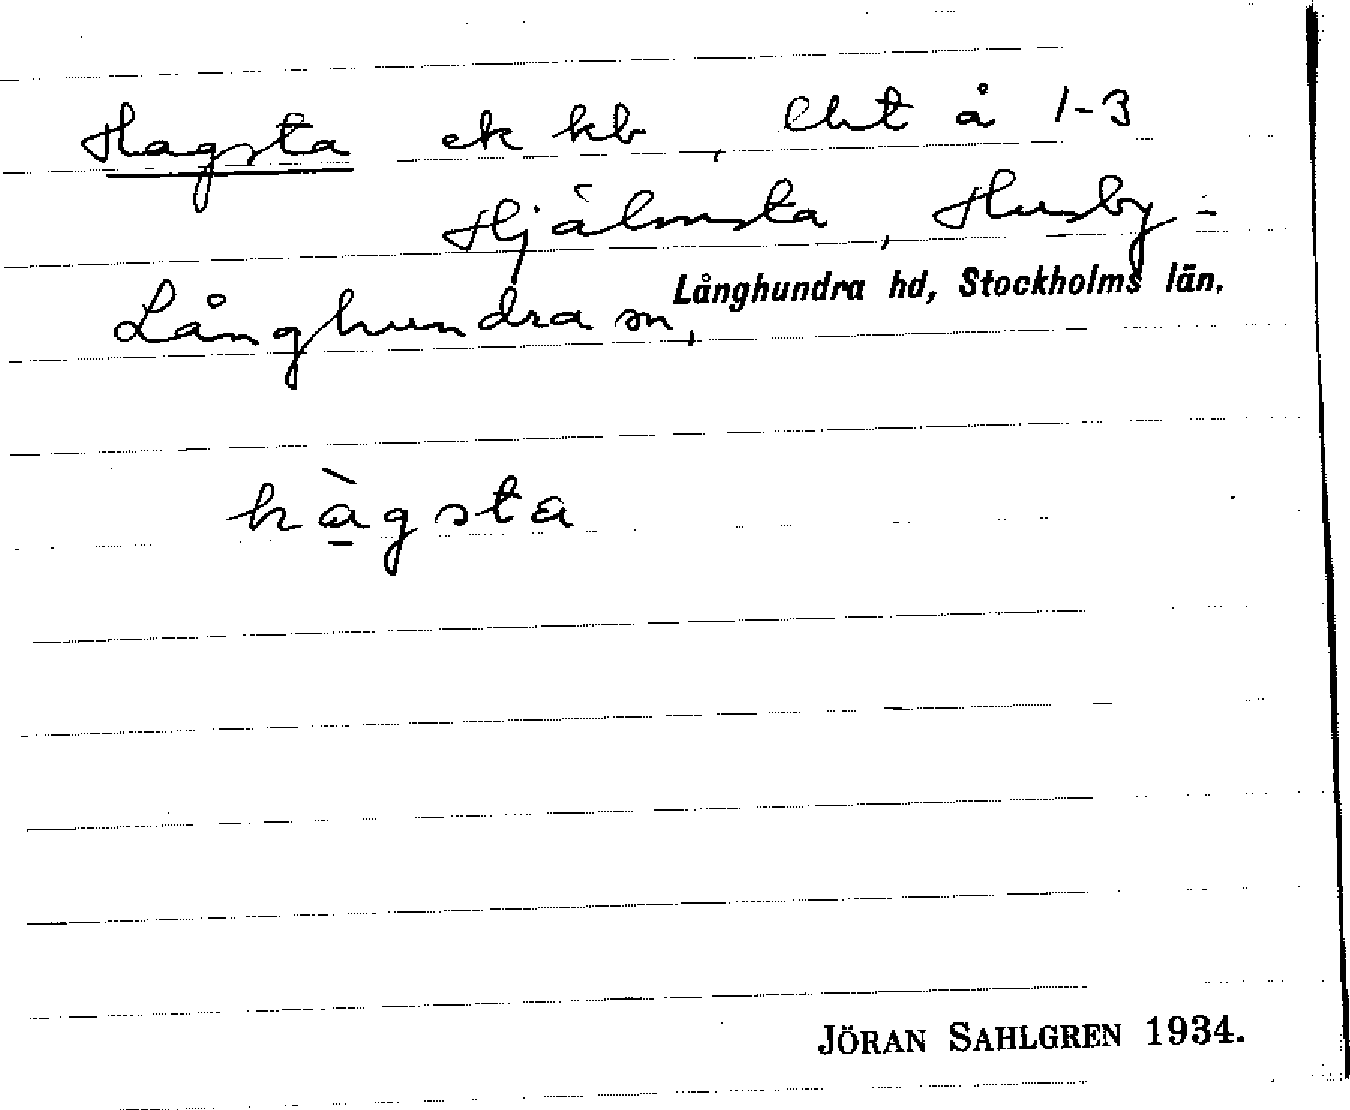 Hagsta ek kb, Cht å 1-3
Hjälmsta, Husby-
Långhundra sn, Långhundra hd, Stockholms län.
hàgsta
JÖRAN SAHLGREN 1934.